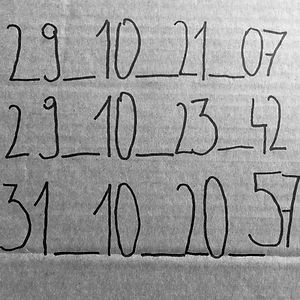 29_10_21_07
29_10_23_42
31_10_20_57